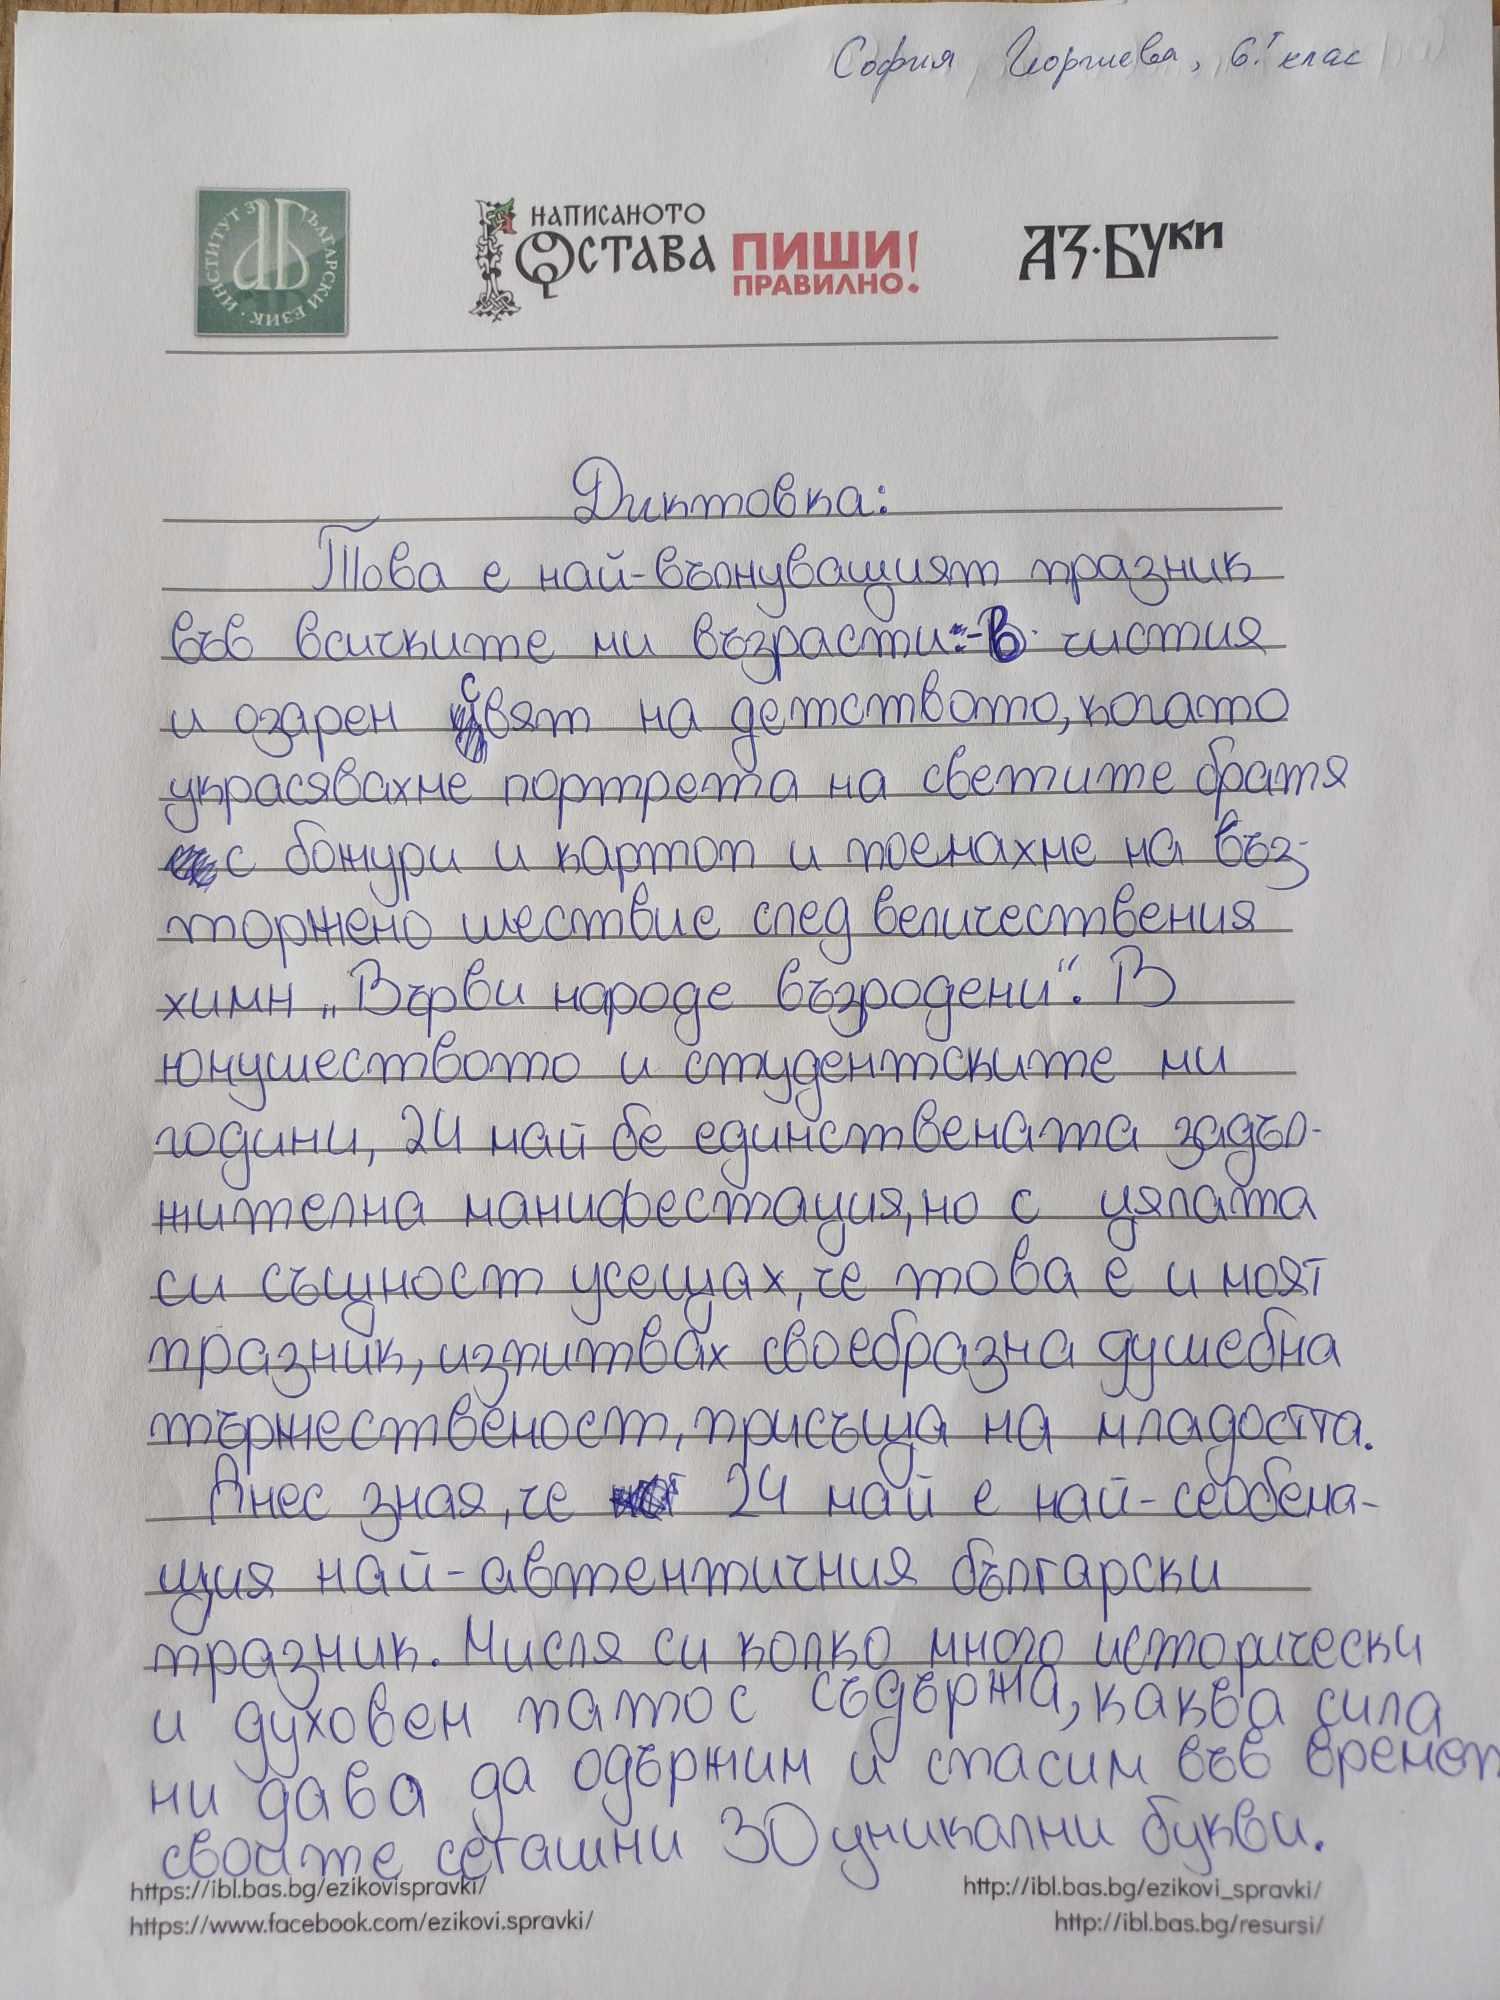 София Георгиева, 6.г клас
ИНСТИТУТ ЗА БЪЛГАРСКИ ЕЗИК
НАПИСАНОТО
ОСТАВА
ПИШИ!
ПРАВИЛНО.
АЗ·БУКИ
Диктовка:
Това е най-вълнуващият празник
във всичките ми възрасти:-В чистия
и озарен свят на детството, когато
украсявахме портрета на светите братя
с божури и картоп и поемахме на въз-
торжено шествие след величествения
химн „Върви народе възродени“. В
юнушеството и студентските ми
години, 24 май бе единствената задъл-
жителна манифестация, но с цялата
си същност усещах, че това е и моят
празник, изпитвах своебразна душебна
тържественост, присъща на младостта.
Днес зная, че 24 май е най-себобена-
щия най-автентичния български
празник. Мисля си колко много исторически
и духовен патос съдържа, каква сила
ни дава да одържим и спасим във времет
своите сегашни 30 уникални букви.
https://ibl.bas.bg/ezikovispravki/
http://ibl.bas.bg/ezikovi_spravki/
https://www.facebook.com/ezikovi.spravki/
http://ibl.bas.bg/resursi/